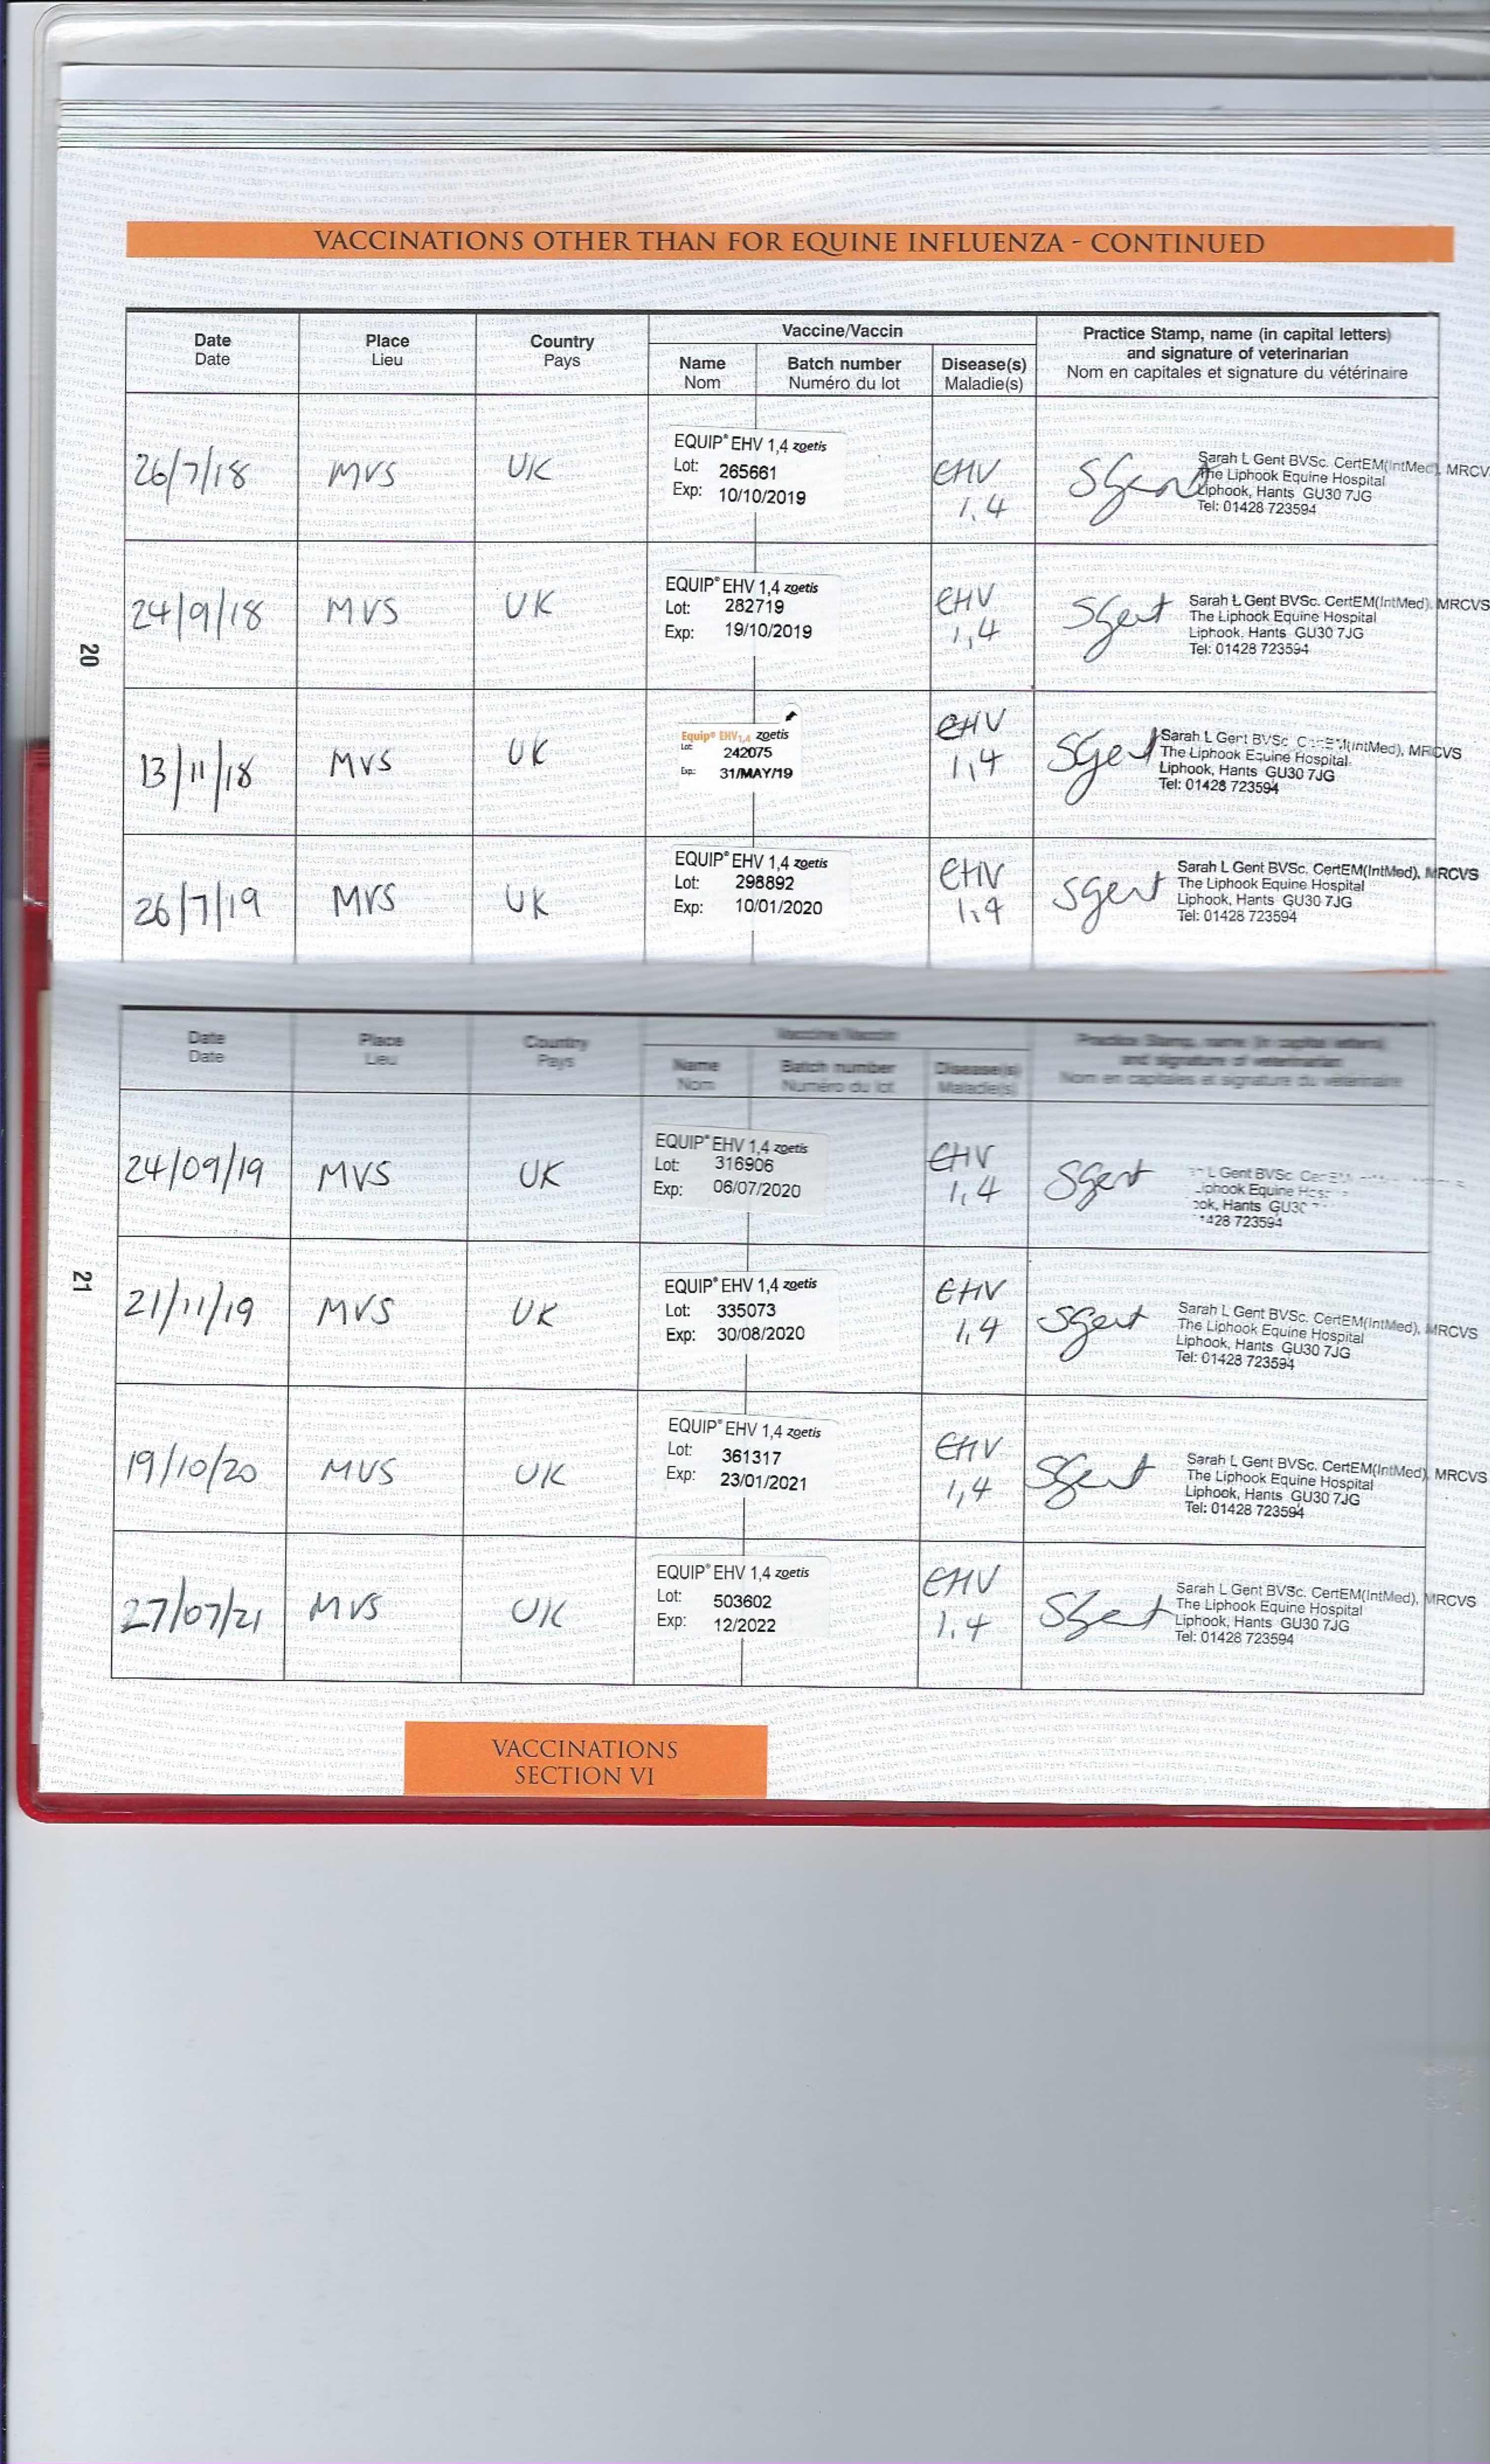 VACCINATIONS OTHER THAN FOR EQUINE INFLUENZA - CONTINUED
Date Place Country Vaccine/Vaccin Practice Stamp, name (in capital letters)
Date Lieu Pays Name Batch number Disease(s) and signature of veterinarian
Nom Numéro du lot Maladie(s) Nom en capitales et signature du vétérinaire
26/7/18 MVS UK EQUIP® EHV 1,4 zoetis EHV SGent Sarah L Gent BVSc. CertEM(IntMed), MRCV
Lot: 265661 1,4 The Liphook Equine Hospital
Exp: 10/10/2019 Liphook, Hants GU30 7JG
Tel: 01428 723594
24/9/18 MVS UK EQUIP® EHV 1,4 zoetis EHV SGent Sarah L Gent BVSc. CertEM(IntMed), MRCVS
Lot: 282719 1,4 The Liphook Equine Hospital
Exp: 19/10/2019 Liphook. Hants GU30 7JG
Tel: 01428 723594
20
13/11/18 MVS UK Equip® EHV1,4 zoetis EHV SGent Sarah L Gent BVSc (IntMed), MRCVS
Lot: 242075 1,4 The Liphook Equine Hospital
Exp: 31/MAY/19 Liphook, Hants GU30 7JG
Tel: 01428 723594
26/7/19 MVS UK EQUIP® EHV 1,4 zoetis EHV SGent Sarah L Gent BVSc. CertEM(IntMed), MRCVS
Lot: 298892 1,4 The Liphook Equine Hospital
Exp: 10/01/2020 Liphook, Hants GU30 7JG
Tel: 01428 723594
Date Place Country Vaccine/Vaccin Practice Stamp, name (in capital letters)
Date Lieu Pays Name Batch number Disease(s) and signature of veterinarian
Nom Numéro du lot Maladie(s) Nom en capitales et signature du vétérinaire
24/09/19 MVS UK EQUIP® EHV 1,4 zoetis EHV SGent L Gent BVSc.
Lot: 316906 1,4 Equine
Exp: 06/07/2020 Hants
1428 723594
21
21/11/19 MVS UK EQUIP® EHV 1,4 zoetis EHV SGent Sarah L Gent BVSc. CertEM(IntMed), MRCVS
Lot: 335073 1,4 The Liphook Equine Hospital
Exp: 30/08/2020 Liphook, Hants GU30 7JG
Tel: 01428 723594
19/10/20 MVS UK EQUIP® EHV 1,4 zoetis EHV SGent Sarah L Gent BVSc. CertEM(IntMed), MRCVS
Lot: 361317 1,4 The Liphook Equine Hospital
Exp: 23/01/2021 Liphook, Hants GU30 7JG
Tel: 01428 723594
27/07/21 MVS UK EQUIP® EHV 1,4 zoetis EHV SGent Sarah L Gent BVSc. CertEM(IntMed), MRCVS
Lot: 503602 1,4 The Liphook Equine Hospital
Exp: 12/2022 Liphook, Hants GU30 7JG
Tel: 01428 723594
VACCINATIONS
SECTION VI